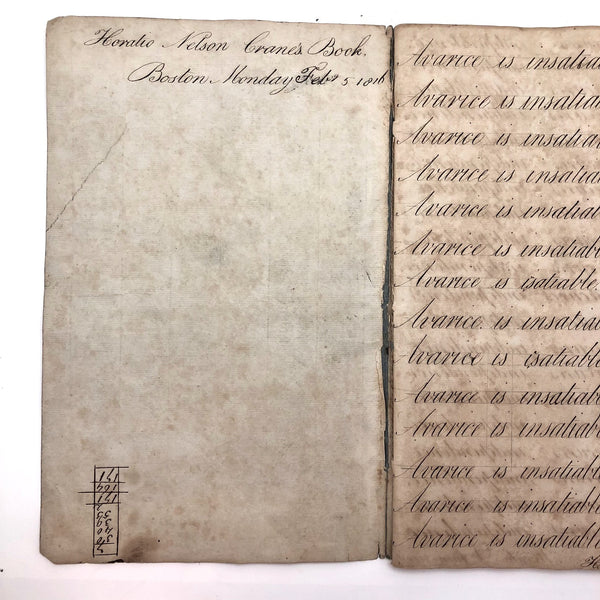 Horatio Nelson Crane's Book.
Boston Monday Feb 5 1816
Avarice is insatiabl
Avarice is insatiabl
Avarice is insatiabl
Avarice is insatiabl
Avarice is insatiabl
Avarice is insatiable
Avarice is isatiable.
Avarice is insatiabl
Avarice is isatiable
Avarice is insatiabl
Avarice is insatiabl
Avarice is insatiabl
Avarice is insatiabl
Avarice is insatiable
171
169
171